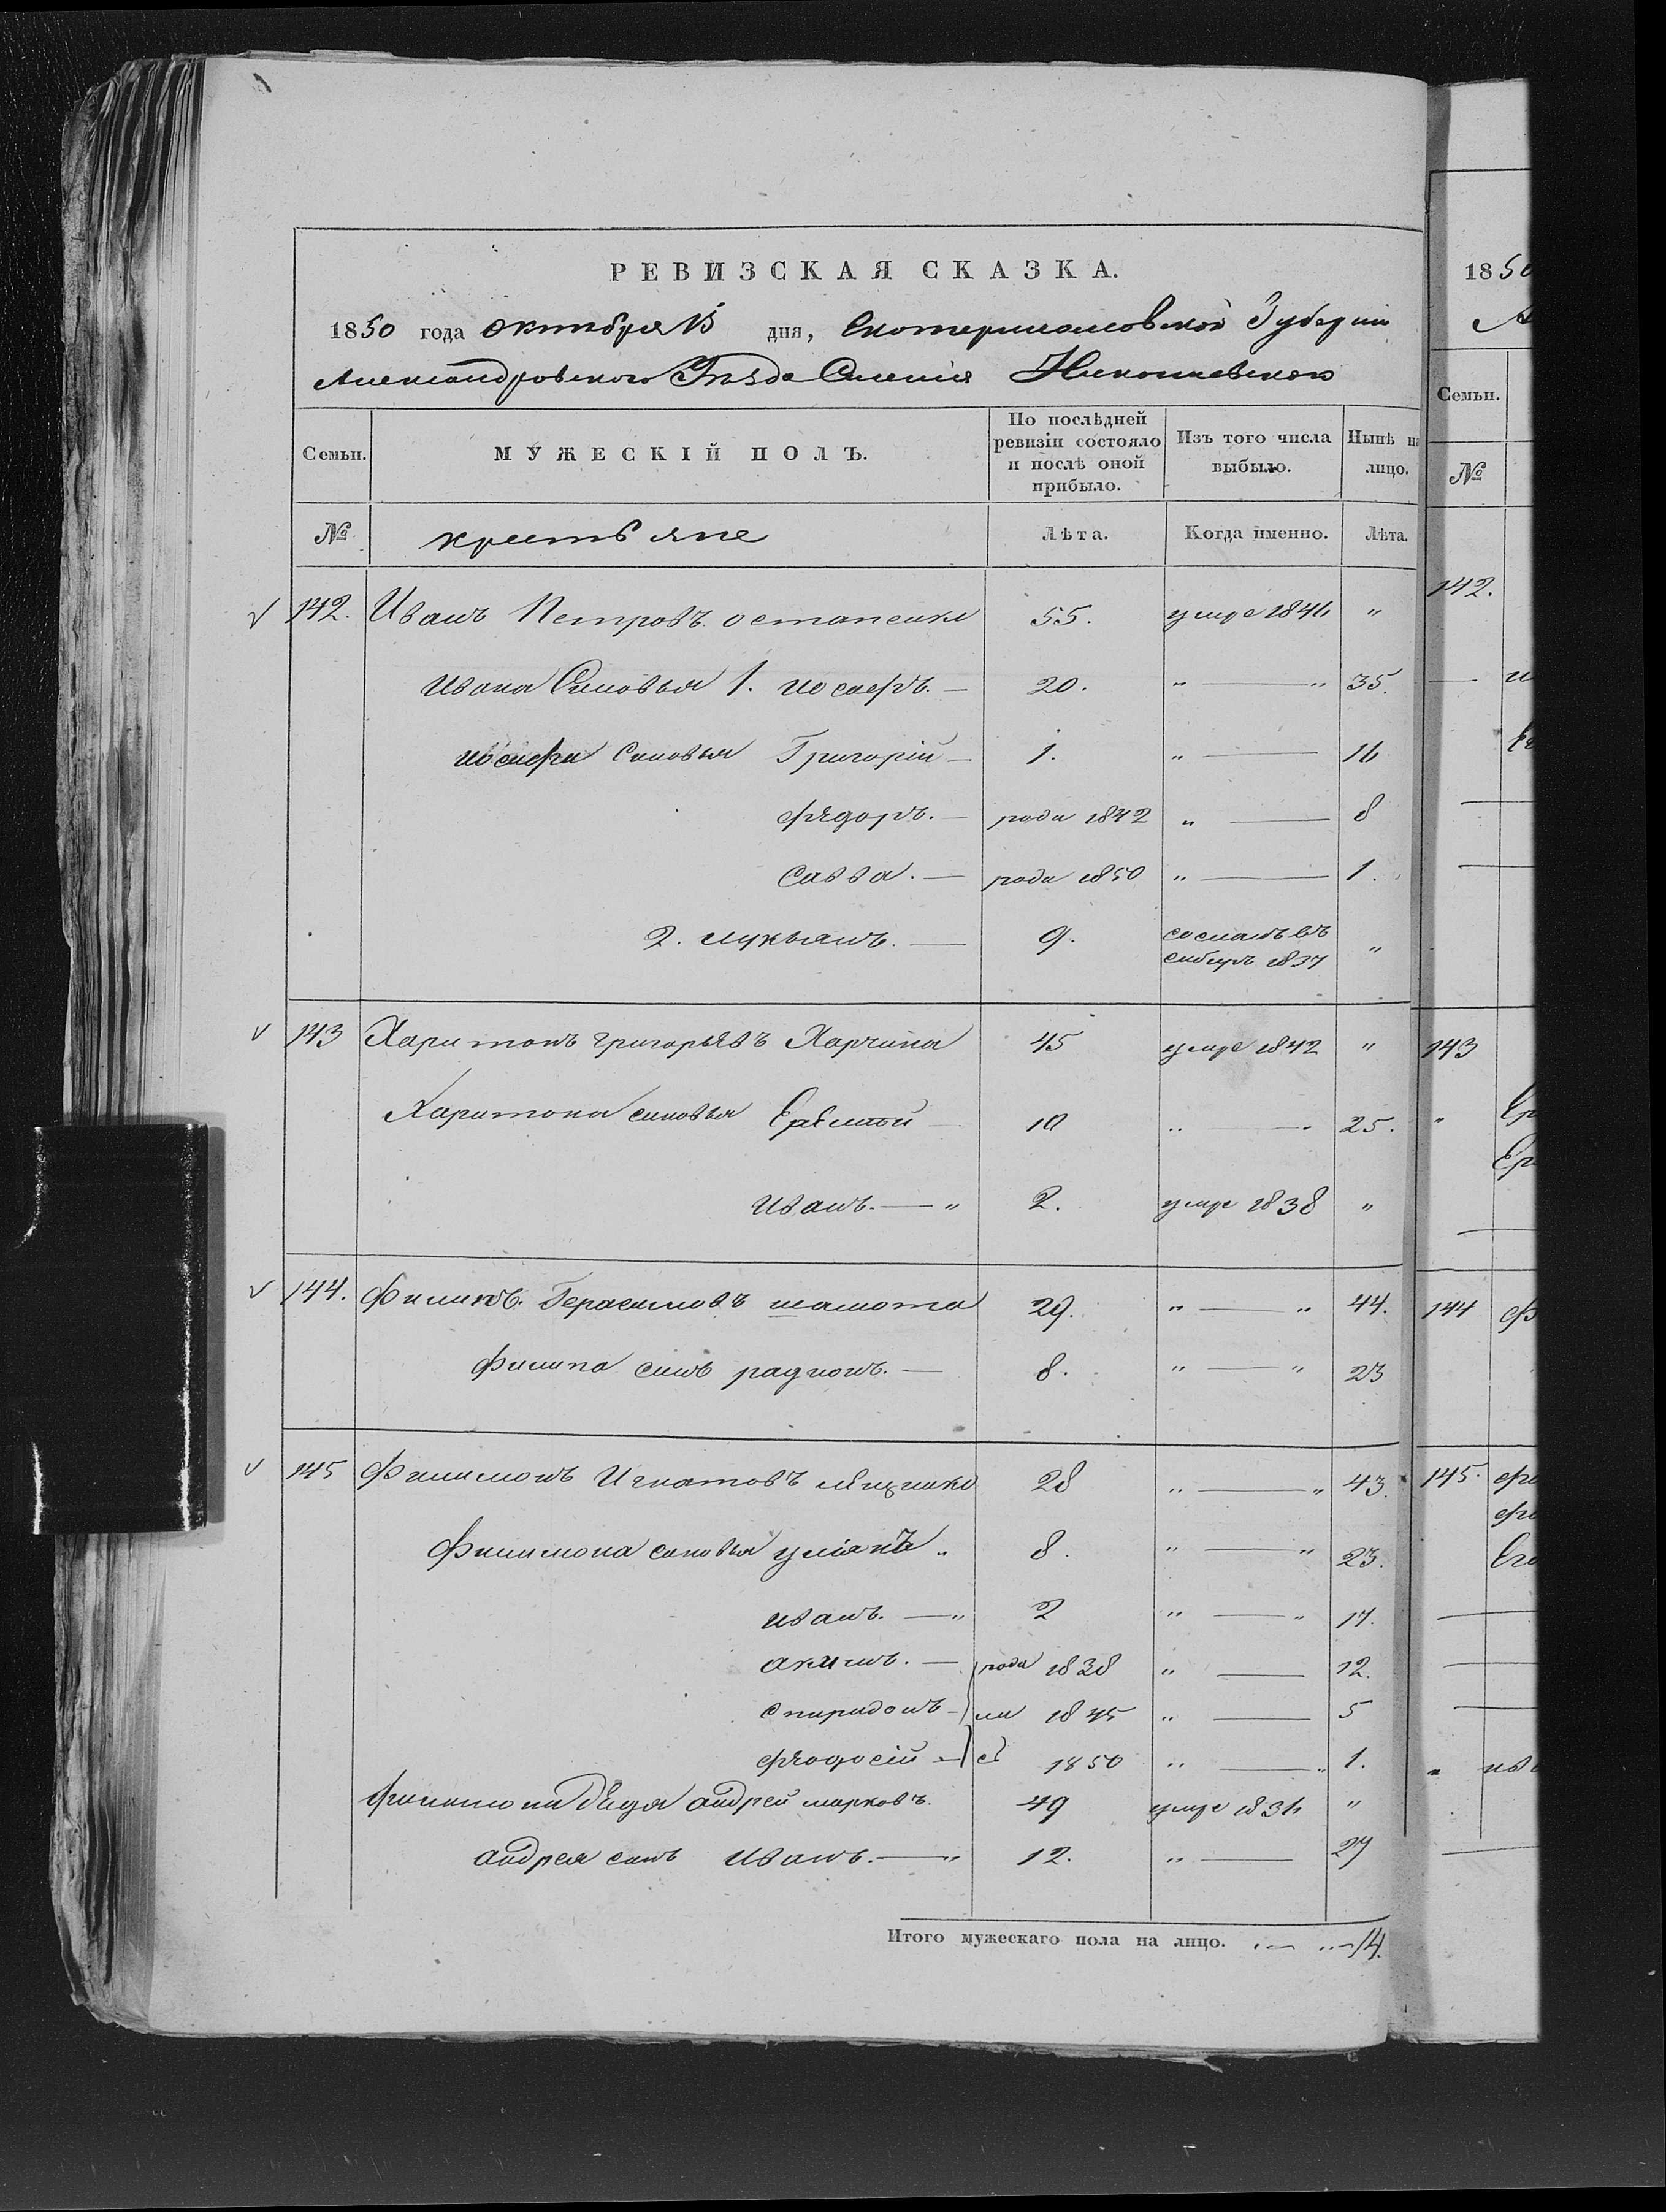 РЕВИЗСКАЯ СКАЗКА.
1850 года октября 15 дня, Екатеринославской Губернии
Александровского Уезда Селения Николаевского
Семьи. МУЖЕСКІЙ ПОЛЪ. По послѣдней ревизіи состояло и послѣ оной прибыло. Изъ того числа выбыло. Нынѣ на лицо.
№ крестьяне Лѣта. Когда именно. Лѣта.
142. Иванъ Петровъ остапенко 55. умре 1846 "
Ивана Сыновья 1. иосифъ. — 20. " — " 35.
иосифа Сыновья Григорій — 1. " — 16
фядоръ. — рода 1842 " — 8
Савва. — рода 1850 " — 1.
2. лукьянъ. — 9. сосланъ въ сибирь 1837 "
143 Харитонъ григорьявъ Харчина 45 умре 1842 "
Харитона сыновья 10 " — 25.
иванъ. — " 2. умре 1838 "
144. Филипъ. Герасимовъ шамота 29. " — " 44.
Филипа сынъ радионъ. — 8. " — " 23
145 Филимонъ Игнатовъ 28 " — " 43.
Филимона сыновья " 8. " — " 23.
иванъ. — " 2 " — " 17.
акимъ. — рода 1838 " — 12.
Спиридонъ — ли 1845 " — 5
фяодосій — с 1850 " — " 1.
филимона дядя андрей марковъ. 49 умре 1836 "
андрея сынъ Иванъ. — " 12. " — 27
Итого мужескаго пола на лицо. " — " — 14.
1850
Семьи.
№
142.
143
144
145.